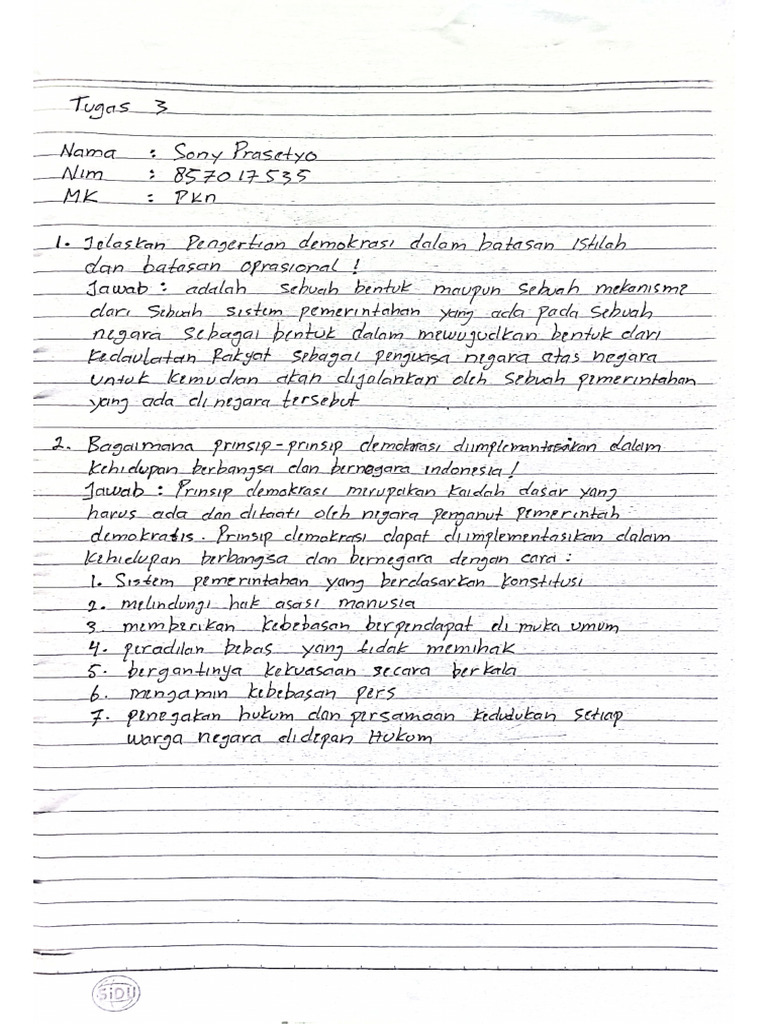 Tugas 3
Nama : Sony Prasetyo
Nim : 857017535
MK : PKn
1. Jelaskan Pengertian demokrasi dalam batasan istilah
dan batasan oprasional !
Jawab : adalah sebuah bentuk maupun sebuah mekanisme
dari sebuah sistem pemerintahan yang ada pada sebuah
negara sebagai bentuk dalam mewugudkan bentuk dari
Kedaulatan Rakyat sebagai penguasa negara atas negara
untuk kemudian akan dijalankan oleh sebuah pemerintahan
yang ada di negara tersebut
2. Bagaimana prinsip-prinsip demokrasi diimplemantasikan dalam
kehidupan berbangsa dan bernegara indonesia !
Jawab : Prinsip demokrasi mirupakan kaidah dasar yang
harus ada dan ditaati oleh negara penganut pemerintah
demokratis. Prinsip demokrasi dapat diimplementasikan dalam
kehidupan berbangsa dan bernegara dengan cara :
1. Sistem pemerintahan yang berdasarkan konstitusi
2. melindungi hak asasi manusia
3. memberikan kebebasan berpendapat di muka umum
4. peradilan bebas yang tidak memihak
5. bergantinya kekuasaan secara berkala
6. mengamin kebebasan pers
7. penegakan hukum dan persamaan kedudukan setiap
warga negara didepan Hukum
SIDU